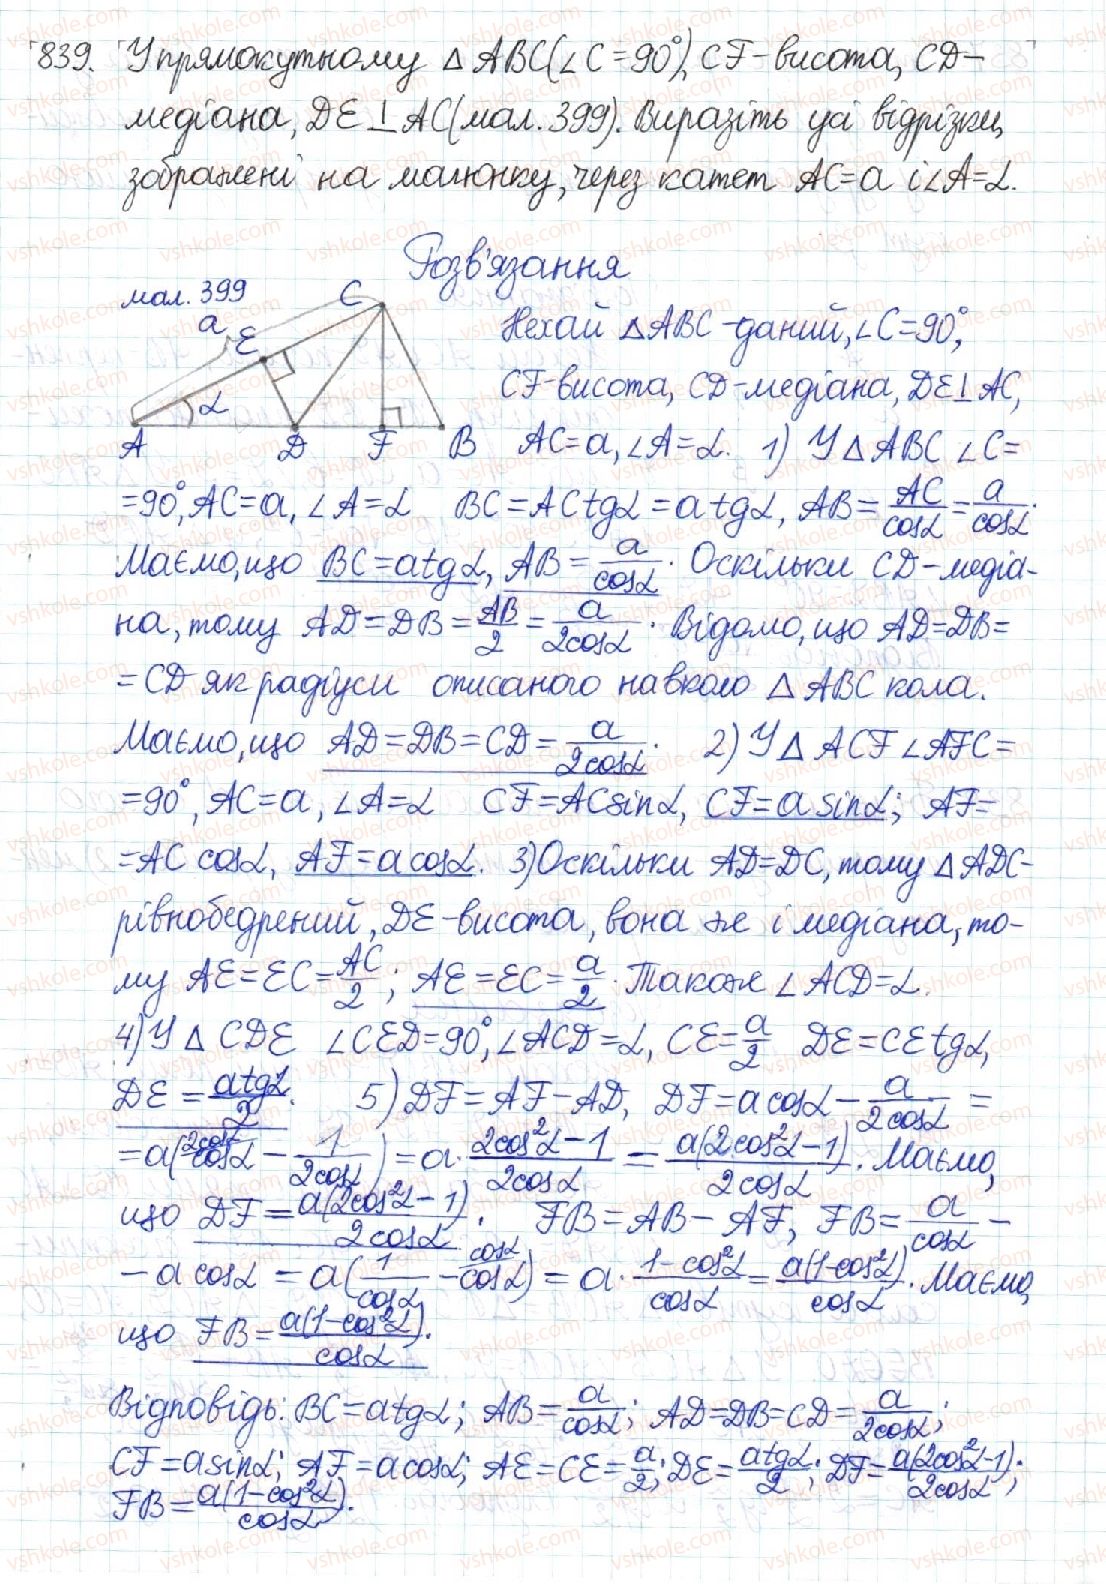 839. У прямокутному △ABC (∠C=90°), CF-висота, CD-
медіана, DE⊥AC (мал. 399). Виразіть усі відрізки,
зображені на малюнку, через катет AC=a і ∠A=α.
Розв'язання
мал. 399
C
a
E
α
A D F B
Нехай △ABC-даний, ∠C=90°,
CF-висота, CD-медіана, DE⊥AC,
AC=a, ∠A=α. 1) У △ABC ∠C=
=90°, AC=a, ∠A=α BC=ACtgα=atgα, AB=AC/cosα=a/cosα.
Маємо, що BC=atgα, AB=a/cosα. Оскільки CD-медіа-
на, тому AD=DB=AB/2=a/2cosα. Відомо, що AD=DB=
=CD як радіуси описаного навколо △ABC кола.
Маємо, що AD=DB=CD=a/2cosα. 2) У △ACF ∠AFC=
=90°, AC=a, ∠A=α CF=ACsinα, CF=asinα; AF=
=AC cosα, AF=acosα. 3) Оскільки AD=DC, тому △ADC-
рівнобедрений, DE-висота, вона же і медіана, то-
му AE=EC=AC/2; AE=EC=a/2. Також ∠ACD=α.
4) У △CDE ∠CED=90°, ∠ACD=α, CE=a/2 DE=CEtgα,
DE=atgα/2. 5) DF=AF-AD, DF=acosα-a/2cosα=
=a(2cosα cosα-1/2cosα)=a·2cos²α-1/2cosα=a(2cos²α-1)/2cosα. Маємо,
що DF=a(2cos²α-1)/2cosα. FB=AB-AF, FB=a/cosα-
-a cosα=a(1/cosα-cosα cosα)=a·1-cos²α/cosα=a(1-cos²α)/cosα. Маємо,
що FB=a(1-cos²α)/cosα.
Відповідь: BC=atgα; AB=a/cosα; AD=DB=CD=a/2cosα;
CF=asinα; AF=acosα; AE=CE=a/2; DE=atgα/2; DF=a(2cos²α-1)/2cosα;
FB=a(1-cos²α)/cosα.